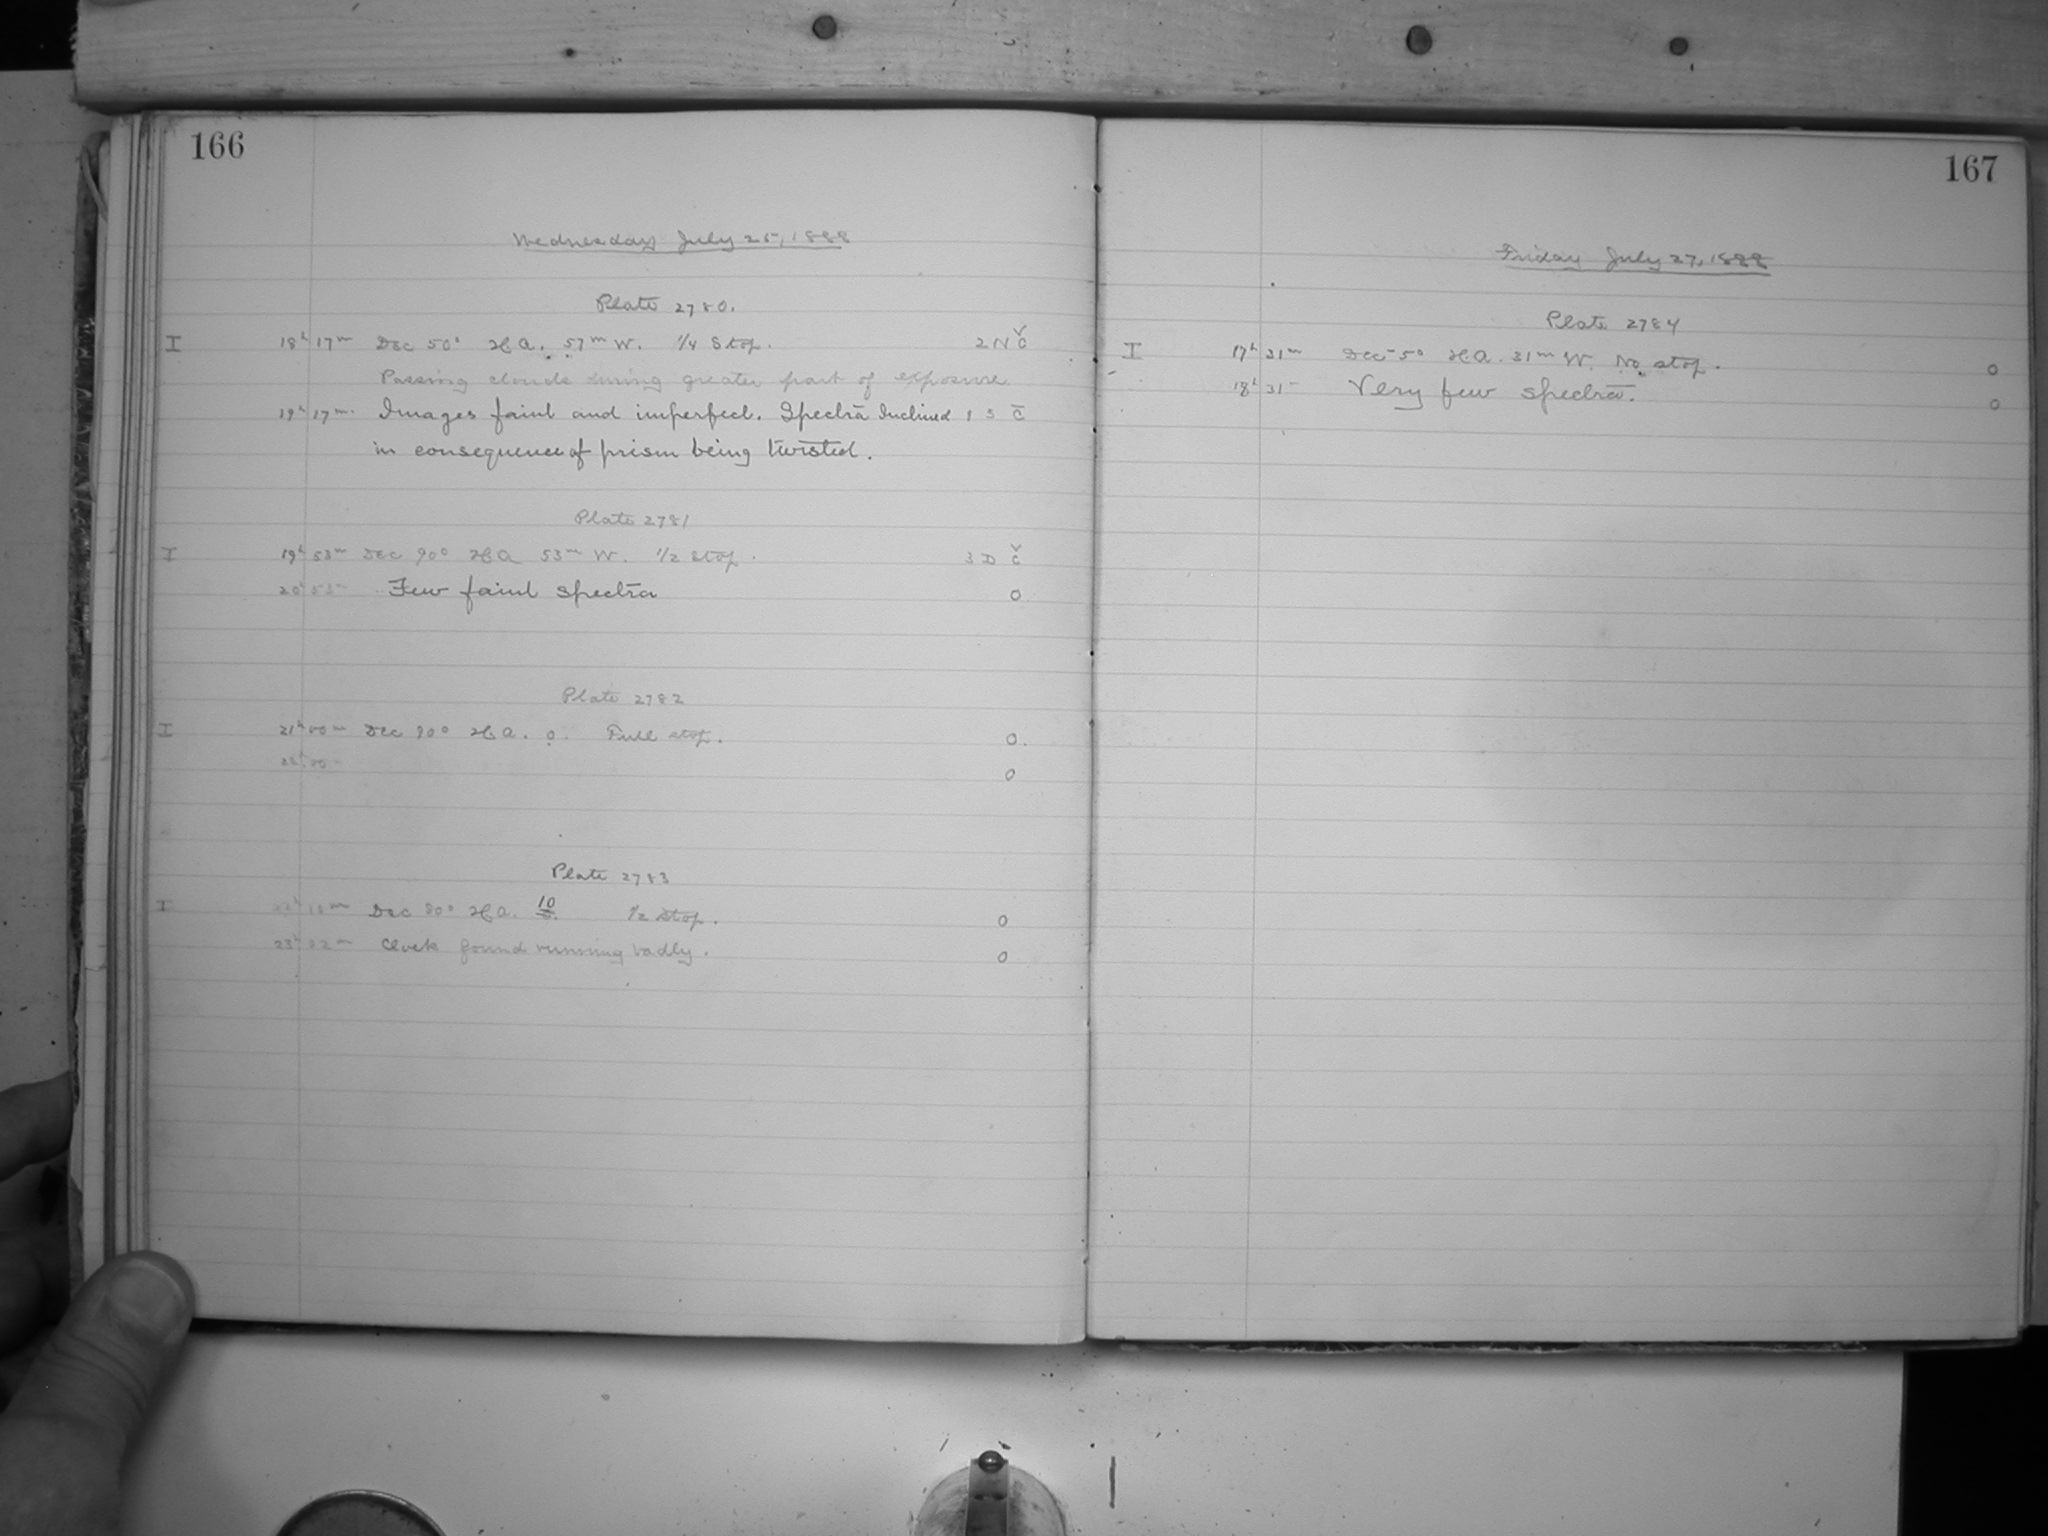 166
Wednesday July 25, 1888
Plate 2780.
I 18h 17m Dec 50° H.A. 57m W. 1/4 Stop. 2 N C̆
Passing clouds during greater part of exposure
19h 17m. Images faint and imperfect. Spectra Inclined 1 S C̄
in consequence of prism being twisted.
Plate 2781
I 19h 53m Dec 90° H.A. 53m W. 1/2 stop. 3 D C̆
20h 53m Few faint spectra 0
Plate 2782
I 21h 00m Dec 90° H.A. 0. Full stop. 0.
0
Plate 2783
I Dec 80° H.A. 10 1/2 Stop. 0
23h 22m Clock found running badly. 0
167
Friday July 27, 1888
Plate 2784
I 17h 31m Dec -5° H.A. 31m W. No stop. 0
18h 31m Very few spectra. 0